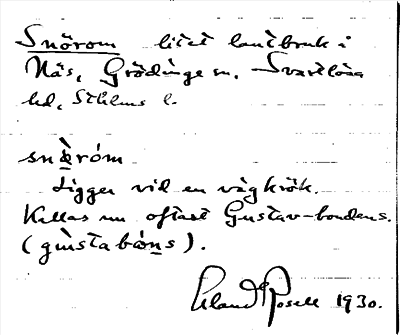 Snörom litet lantbruk i
Näs, Grödinge sn. Svartlösa
hd, Sthlms l.
snö̀róm
Ligger vid en vägkrök.
Kallas nu oftast Gustav-bondens.
(gùstabón̲s).
Erland Rosell 1930.